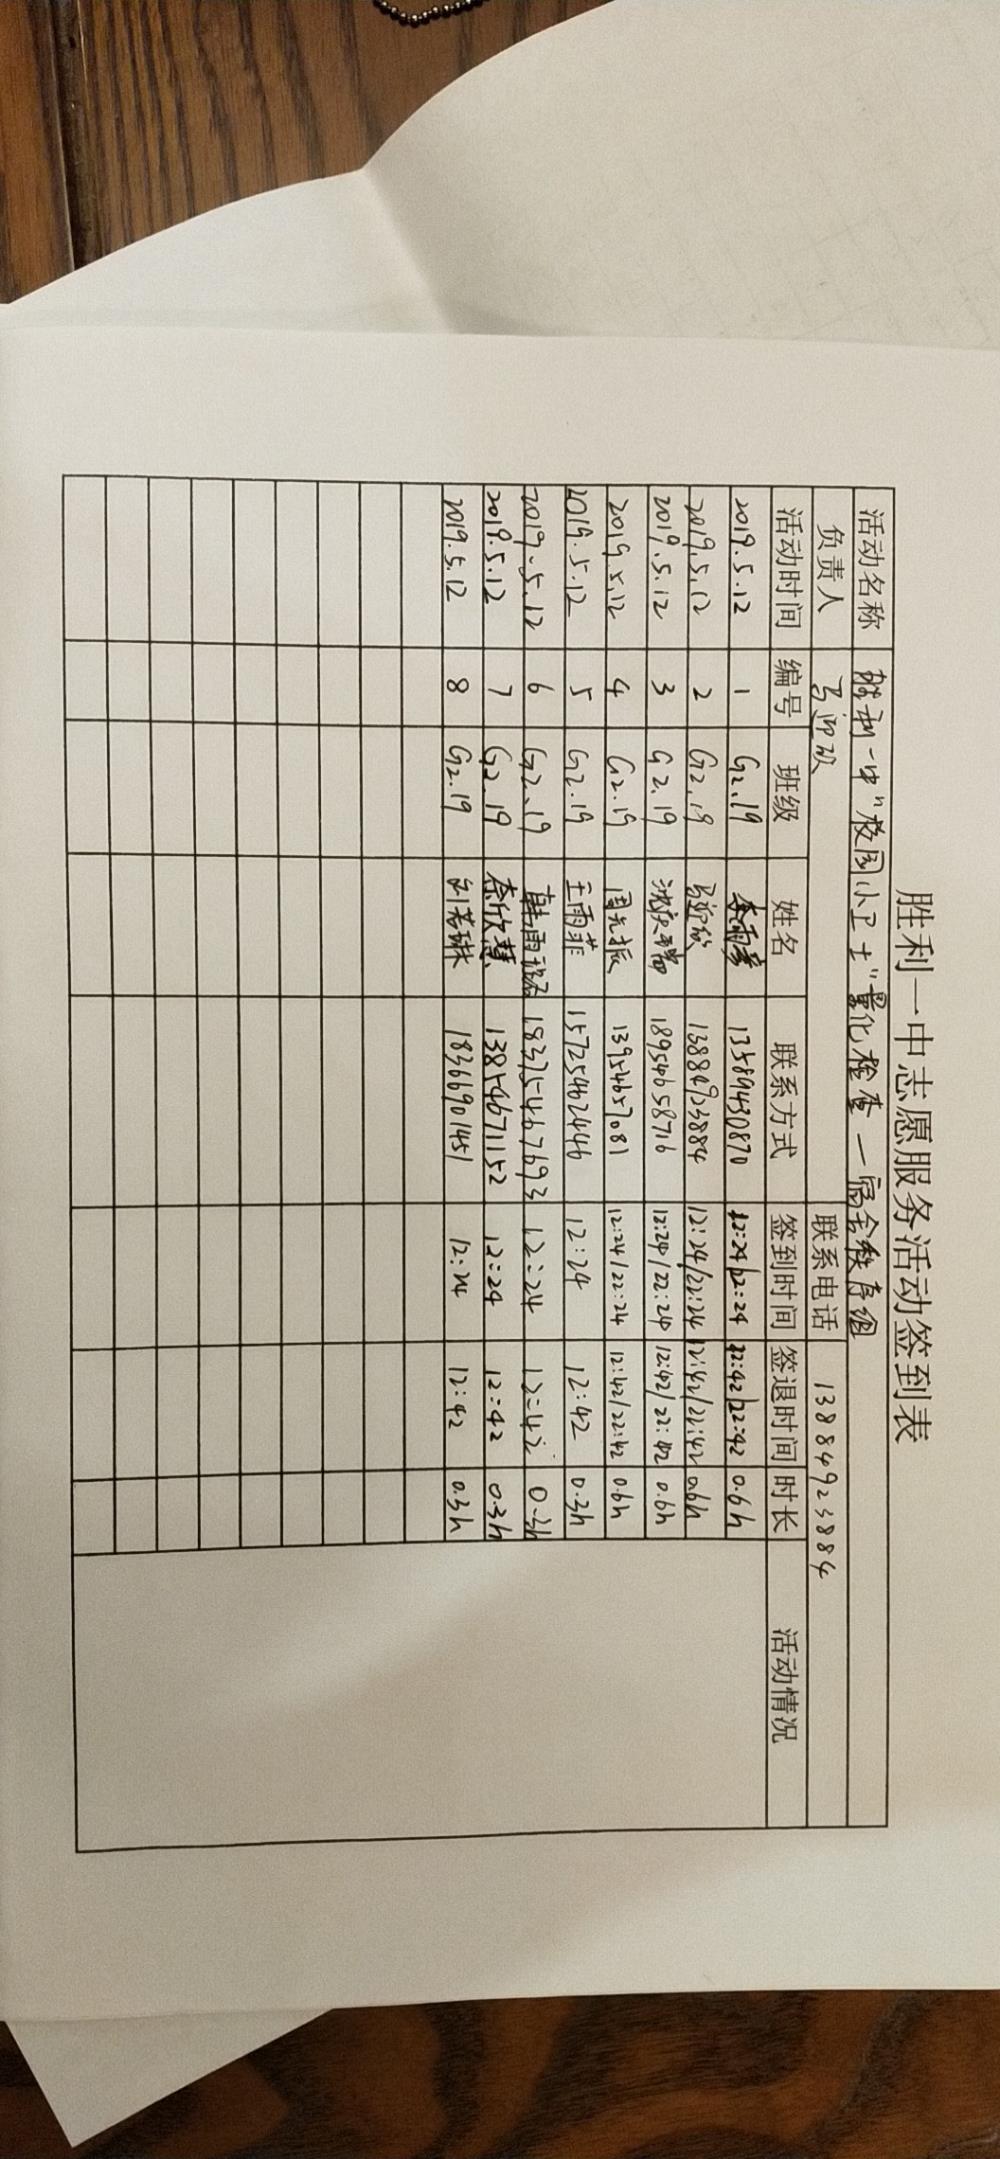 胜利一中志愿服务活动签到表
活动名称 胜利一中"校园小卫士"量化检查—宿舍秩序组
负责人 联系电话 13884923884
活动时间 编号 班级 姓名 联系方式 签到时间 签退时间 时长 活动情况
2019.5.12 1 G2.19 李雨彦 13589430870 12:24/22:24 12:42/22:42 0.6h
2019.5.12 2 G2.19 13884923884 12:24/22:24 12:42/22:42 0.6h
2019.5.12 3 G2.19 18954658716 12:24/22:24 12:42/22:42 0.6h
2019.5.12 4 G2.19 周先振 13954657081 12:24/22:24 12:42/22:42 0.6h
2019.5.12 5 G2.19 王雨菲 15725462446 12:24 12:42 0.3h
2019.5.12 6 G2.19 18375467693 12:24 12:42 0.3h
2019.5.12 7 G2.19 13854671152 12:24 12:42 0.3h
2019.5.12 8 G2.19 刘若琳 18366901451 12:24 12:42 0.3h